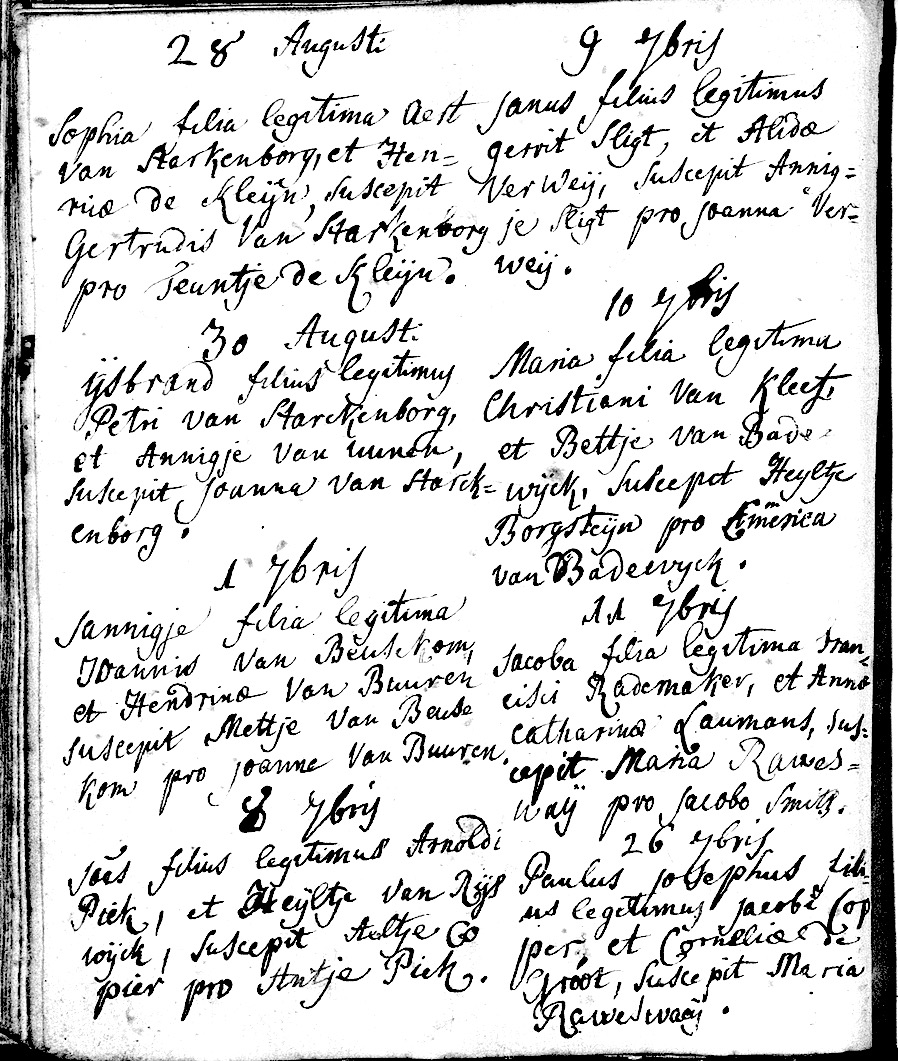 28 Augusti
Sophia filia legitima Aert
van Starkenborg, et Hen=
ricæ de Kleijn, suscepit
Gertrudis Van Starkenborg
pro Teuntje de Kleijn.
30 Augusti
ijsbrand filius legitimus
Petri van Starckenborg,
et Annigje van uunen,
suscepit Joanna van Starck=
enborg.
1 7bris
Jannigje filia legitima
Joannis Van Beusekom,
et Hendrinæ Van Buuren
suscepit Mettje Van Beuse
kom pro Joanne Van Buuren.
8 7bris
Joēs filius legitimus Arnoldi
Piek, et Heyltje van Rijs
wijck, suscepit Aeltje Co
pier pro Antje Piek.
9 7bris
Janus filius legitimus
gerrit Sligt, et Alidæ
VerWeij, suscepit Annig=
je Sligt pro Joanna Ver=
weij.
10 7bris
Maria filia legitima
Christiani Van Kleef,
et Bettje Van Bade
wijck, suscepit Heyltje
Borgsteijn pro Emerica
van Badewyck.
11 7bris
Jacoba filia legitima Fran
cisci Rademaker, et Annæ
catharinæ Laumans, sus=
cepit Maria Rawes=
waij pro Jacobo Smits.
26 7bris
Paulus Josephus fili
us legitimus Jacobi Cop
per, et Corneliæ de
Groot, suscepit Maria
Raweswaaij.